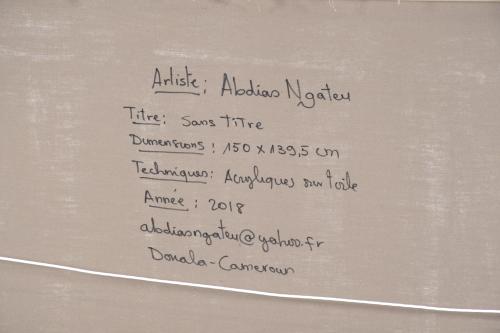 Artiste : Abdias Ngateu
Titre : Sans titre
Dimensions : 150 x 139,5 cm
Techniques : Acryliques sur toile
Année : 2018
abdiasngateu@yahoo.fr
Douala-Cameroun